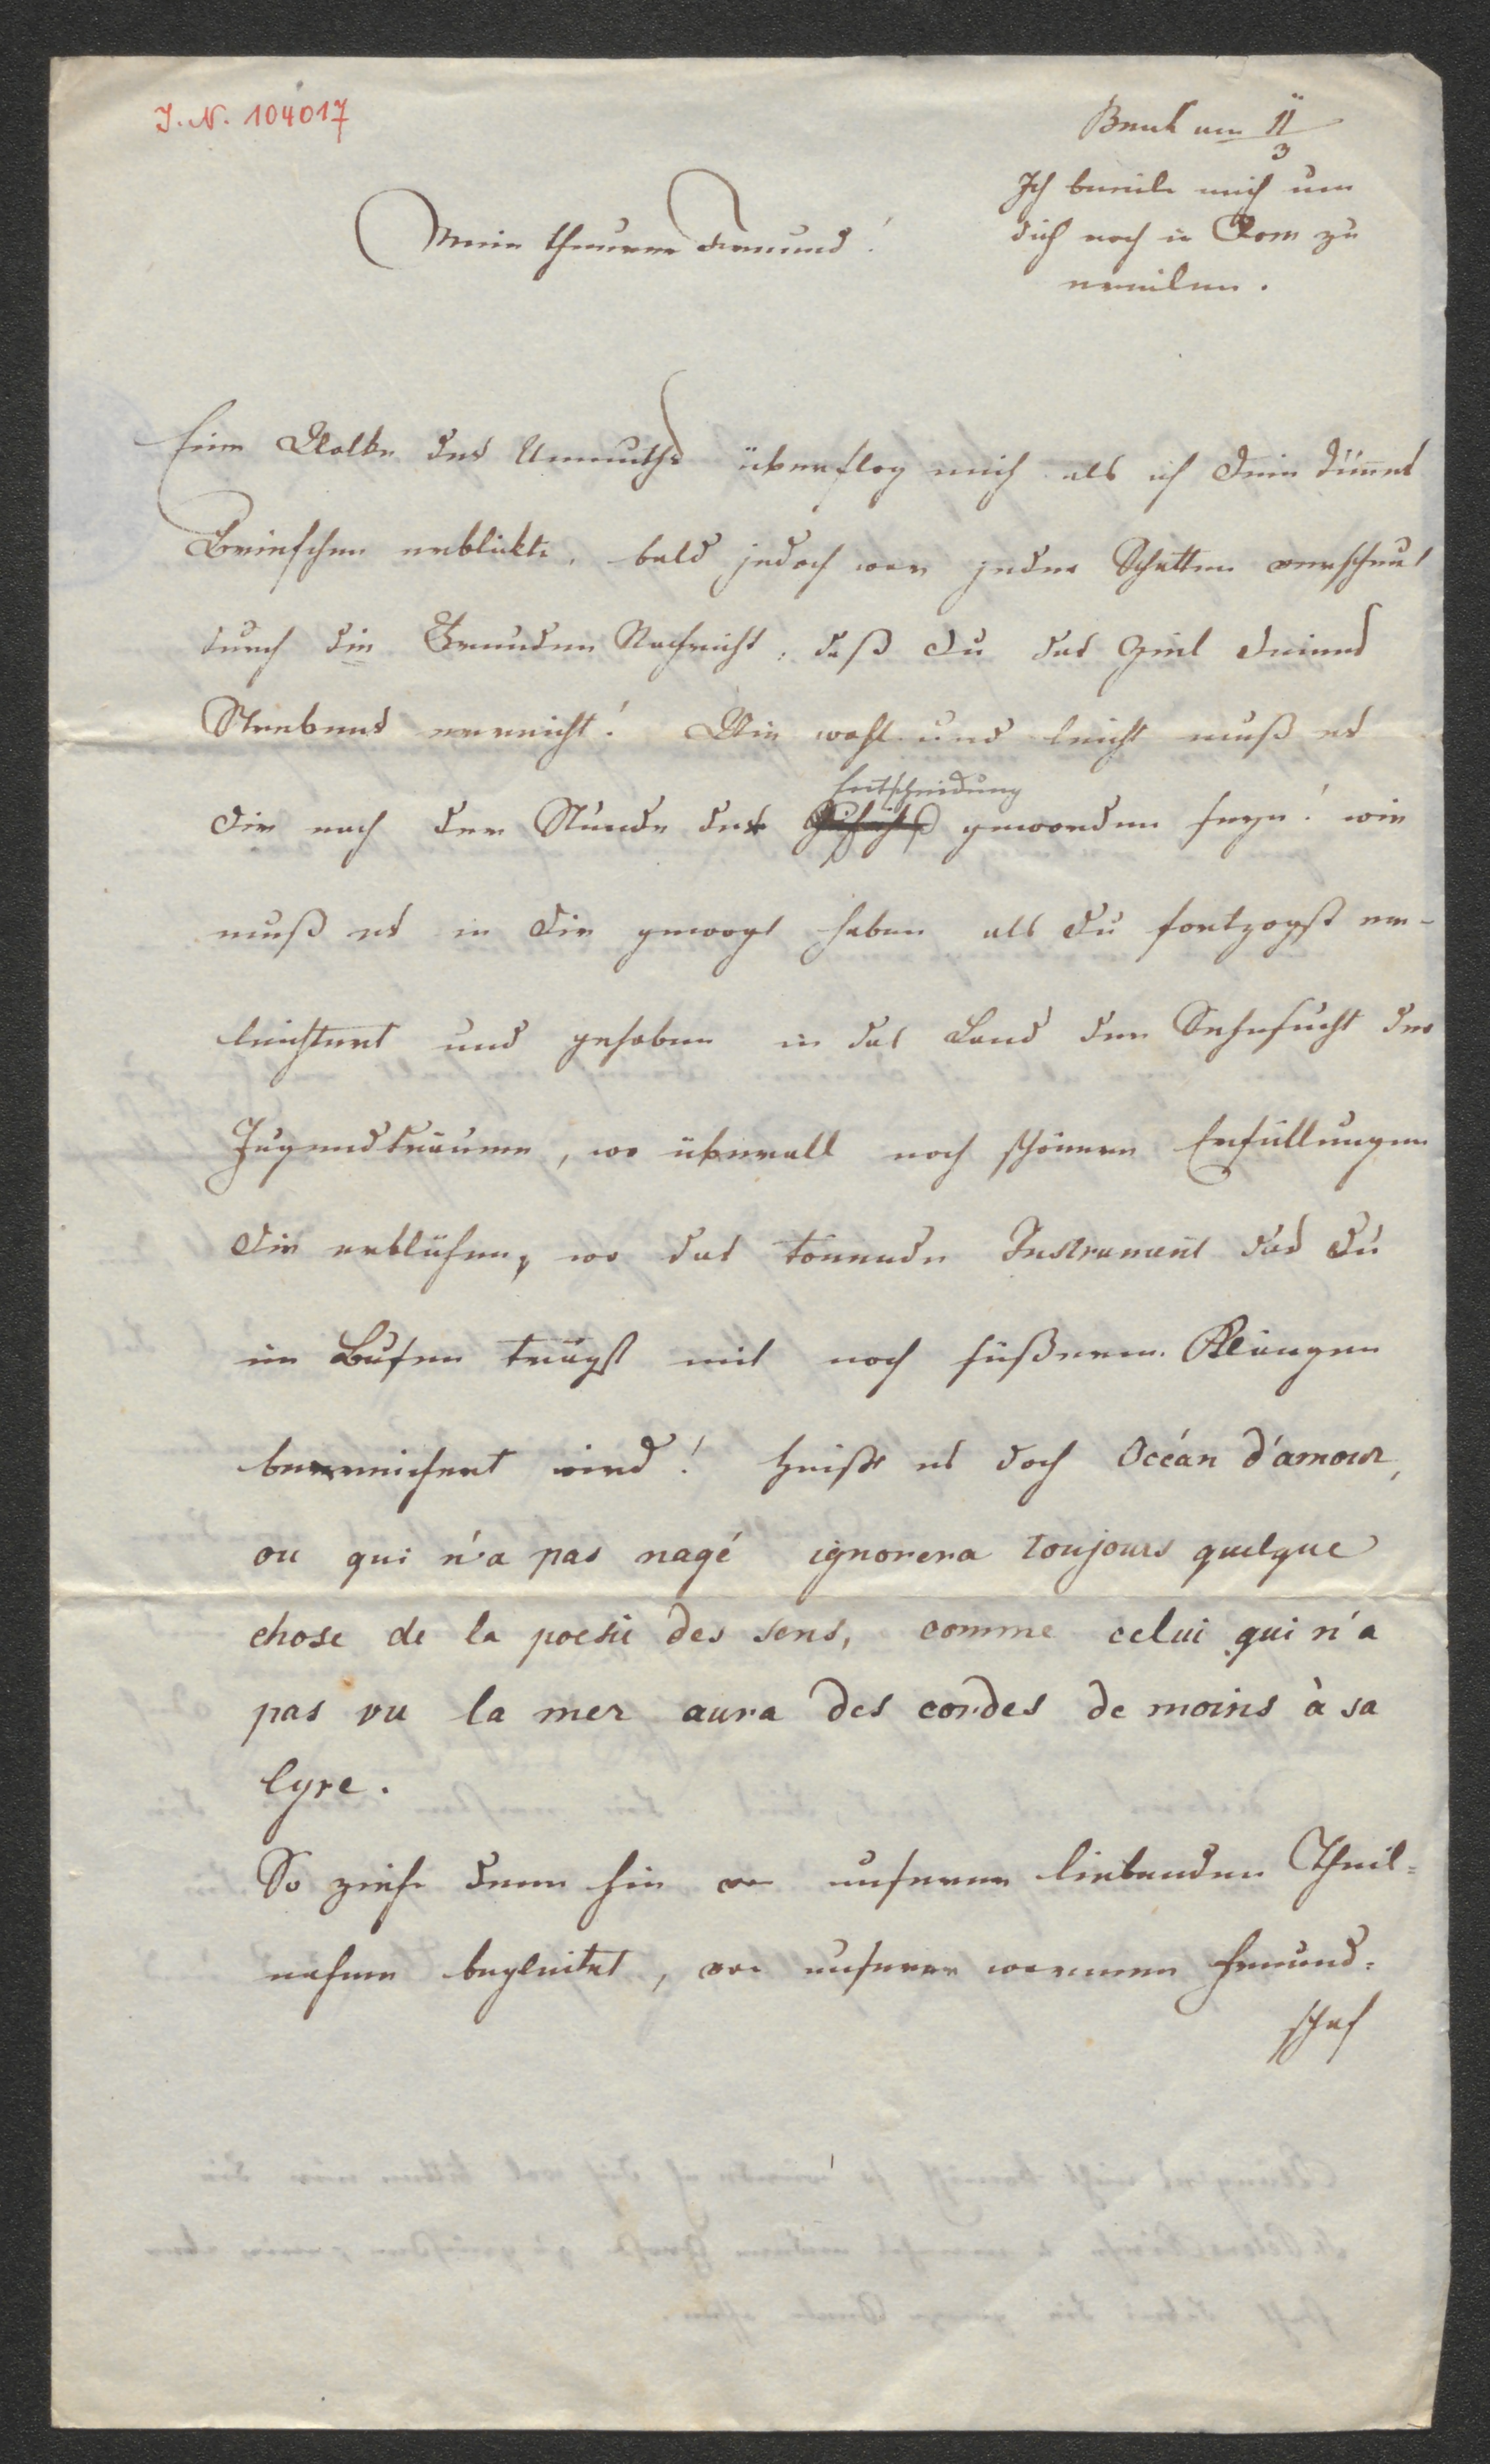 J. N. 104017
Bruck am 11/3
Ich beeile mich um
dich noch in Rom zu
ereilen.
Mein theurer Freund!
Eine Wolke des Unmuths überflog mich als ich dein dünnes
Briefchen erblickte, bald jedoch war jeder Schatten verscheut
durch die Freuden Nachricht, daß du das Ziel deines
Strebens erreicht! Wie wohl und leicht muß es
Entscheidung
dir nach der Stunde der gewoorden seyn! wie
muß es in dir gewogt haben als du fortzogst er-
leichtert und gehoben in das Land der Sehnsucht der
Jugendträume, wo überall noch schönere Erfüllungen
dir erblühen, wo das tönende Instrument das du
im Busen trägst mit noch süßeren Klängen
bereichert wird! heißt es doch Océan d'amour,
ou qui n'a pas nagé ignorera toujours quelque
chose de la poesie des sens, comme celui qui n'a
pas vu la mer aura des cordes de moins à sa
lyre.
So ziehe denn hin von unserer liebenden Theil=
nahme begleitet, von unserer warmen Freund=
schaf